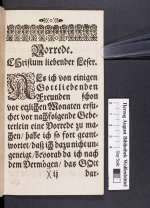 Vorrede.
Christum liebender Leser.
Es ich von einigen
Gottliebenden
Freunden schon
vor etzlichen Monaten ersu-
chet vor nachfolgende Gebe-
terlein eine Vorrede zu ma-
chen / habe ich so fort geant-
wortet / daß ich dazu nicht un-
geneigt / bevorab da ich nach
dem Vermögen / das GOtt
X ij
dar-
Herzog August Bibliothek Wolfenbüttel